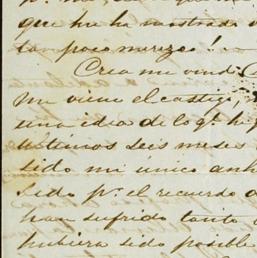 que he mostrado
tampoco merezco! —
Crea me vend
me viene el castigo,
una idea de lo q.e h
ultimos seis meses
sido mi único anh
sido p.r el recuerdo
han sufrido tanto
hubiera sido posible